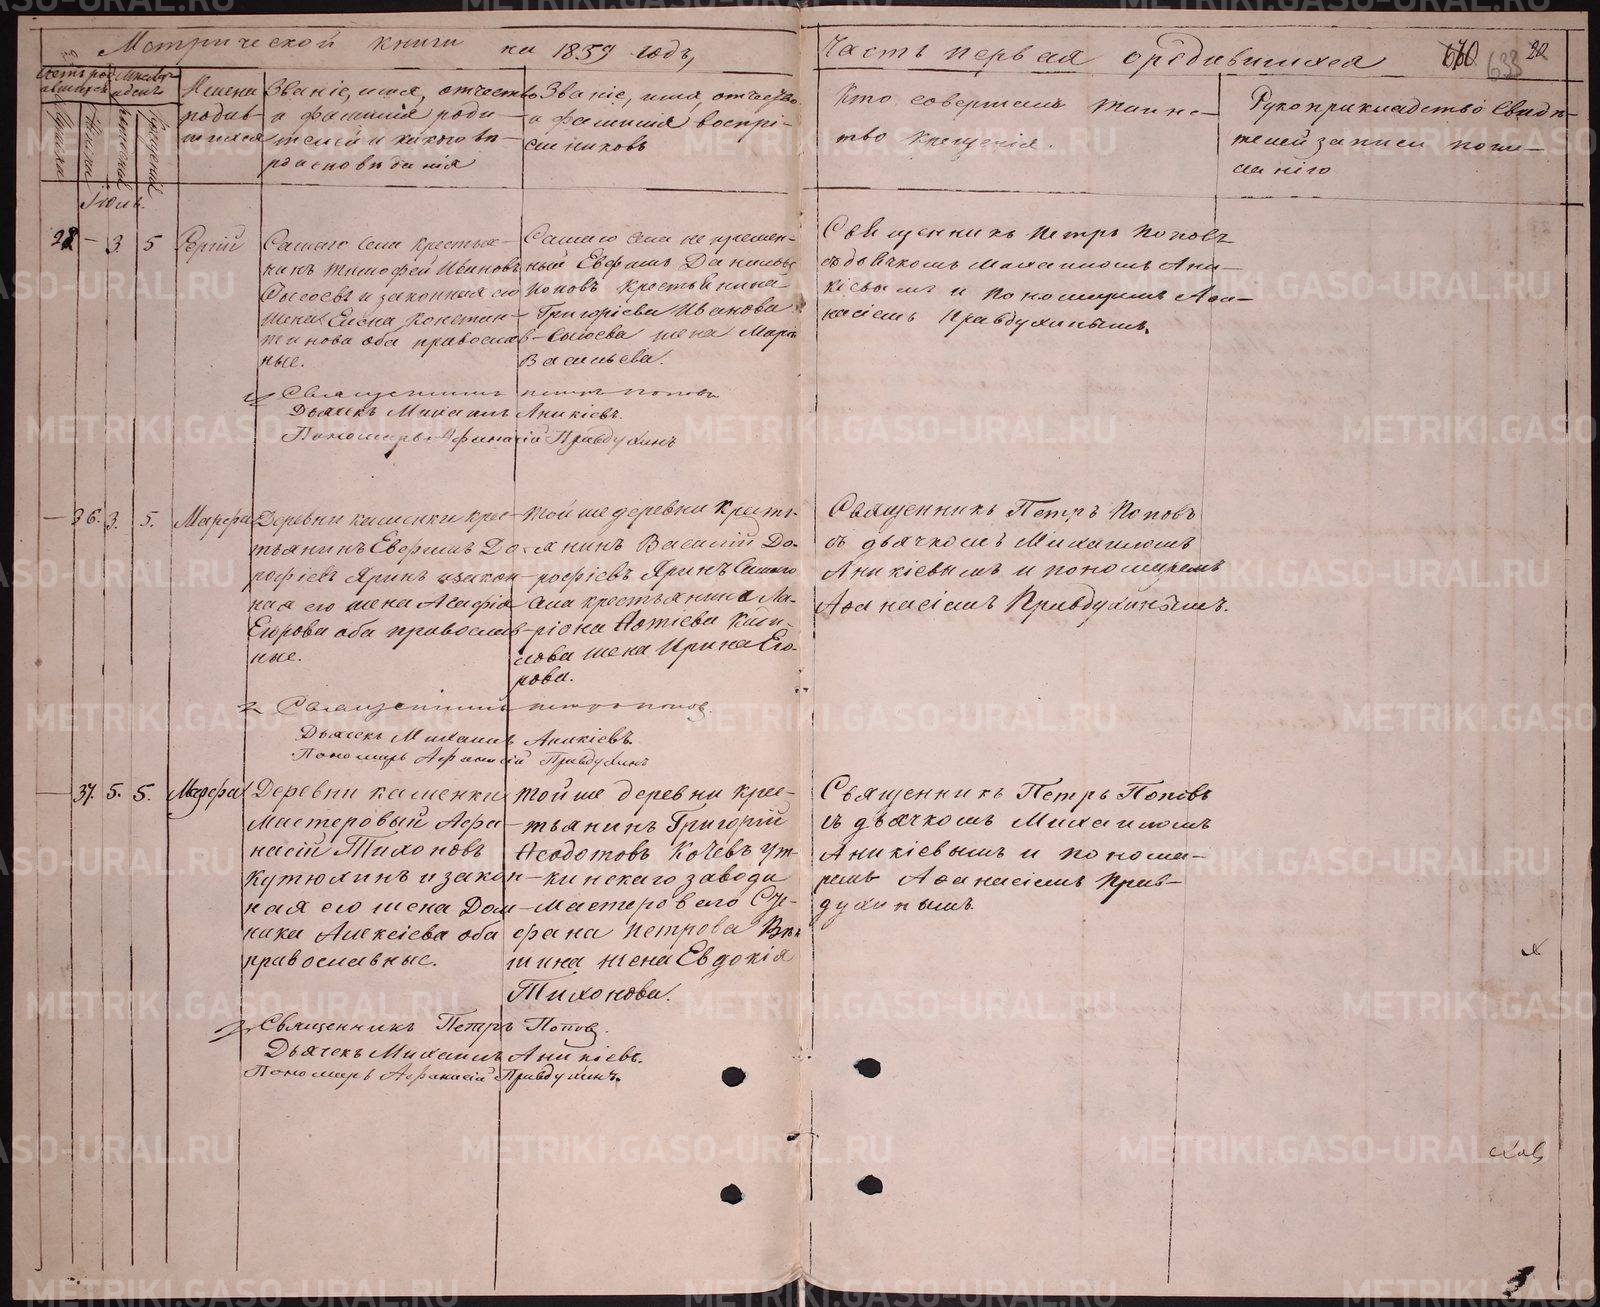 Метрической книги на 1859 годъ,
Часть первая о родившихся
670 633 22
Счетъ родившихся
Мужска
Женска
Мѣсяцъ и день
рожденія
крещенія
Имена родившихся
Званіе, имя, отчество и фамилія родителей и какого вѣроисповѣданія
Званіе, имя, отчество и фамилія воспріемниковъ
Кто совершалъ таинство крещенія.
Рукоприкладство свидѣтелей записи по желанію
Іюль.
28 — 3. 5 Сергій
Самаго села крестья-
нинъ Тимофей Ивановъ
Сысоевъ и законная его
жена Елена Констан-
тинова оба православ-
ные.
Самаго села непремен-
ный Ефимъ Данилов
Поповъ крестьянина
Григорія Иванова
Сысоева жена Марья
Васильева.
Священникъ Петръ Поповъ
съ дьячкомъ Михаиломъ Ани-
кіевымъ и пономаремъ Аѳа-
насіемъ Правдухинымъ.
Священникъ Петръ Поповъ
Дьячекъ Михаилъ Аникіевъ.
Пономарь Афанасій Правдухинъ
— 36. 3. 5. Марфа
Деревни Каменки крес-
тьянинъ Евфимъ До-
рофіевъ Яринъ и закон-
ная его жена Агафія
Егорова оба православ-
ные.
Той же деревни кресть-
янинъ Василій До-
рофіевъ Яринъ самаго
села крестьянина Ла-
ріона Фотіева
жена Ирина Его-
рова.
Священникъ Петръ Поповъ
съ дьячкомъ Михаиломъ
Аникіевымъ и пономаремъ
Аѳанасіемъ Правдухинымъ.
Священникъ Петръ Попов
Дьячекъ Михаилъ Аникіевъ.
Пономарь Афанасій Правдухинъ
— 37. 5. 5. Марфа
Деревни Каменки
мастеровый Афа-
насій Тихоновъ
Кутюхинъ и закон-
ная его жена Дом-
ника Алексіева оба
православные.
Той же деревни крес-
тьянинъ Григорій
Ѳеодотовъ Кочевъ Ут-
кинскаго завода
мастероваго Сте-
фана Петрова
жена Евдокія
Тихонова.
Священникъ Петръ Поповъ
съ дьячкомъ Михаиломъ
Аникіевымъ и понома-
ремъ Аѳанасіемъ Прав-
духинымъ.
Священникъ Петръ Попов.
Дьячекъ Михаилъ Аникіевъ.
Пономарь Афанасій Правдухинъ.
METRIKI.GASO-URAL.RU